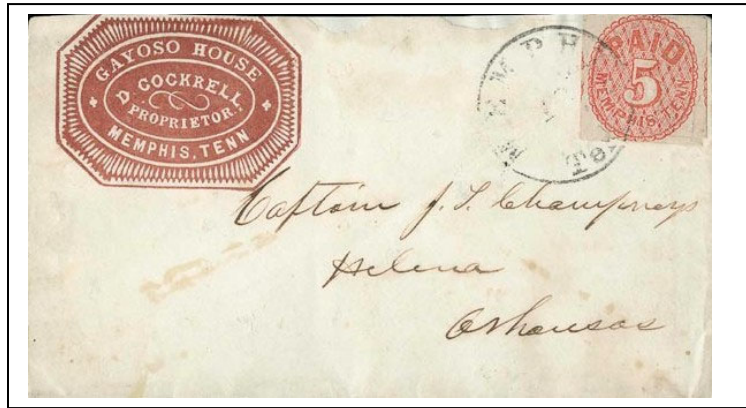 GAYOSO HOUSE
D COCKRELL
PROPRIETOR.
MEMPHIS, TENN
PAID
5
MEMPHIS, TENN.
Captain J. S. Champneys
Helena
Arkansas